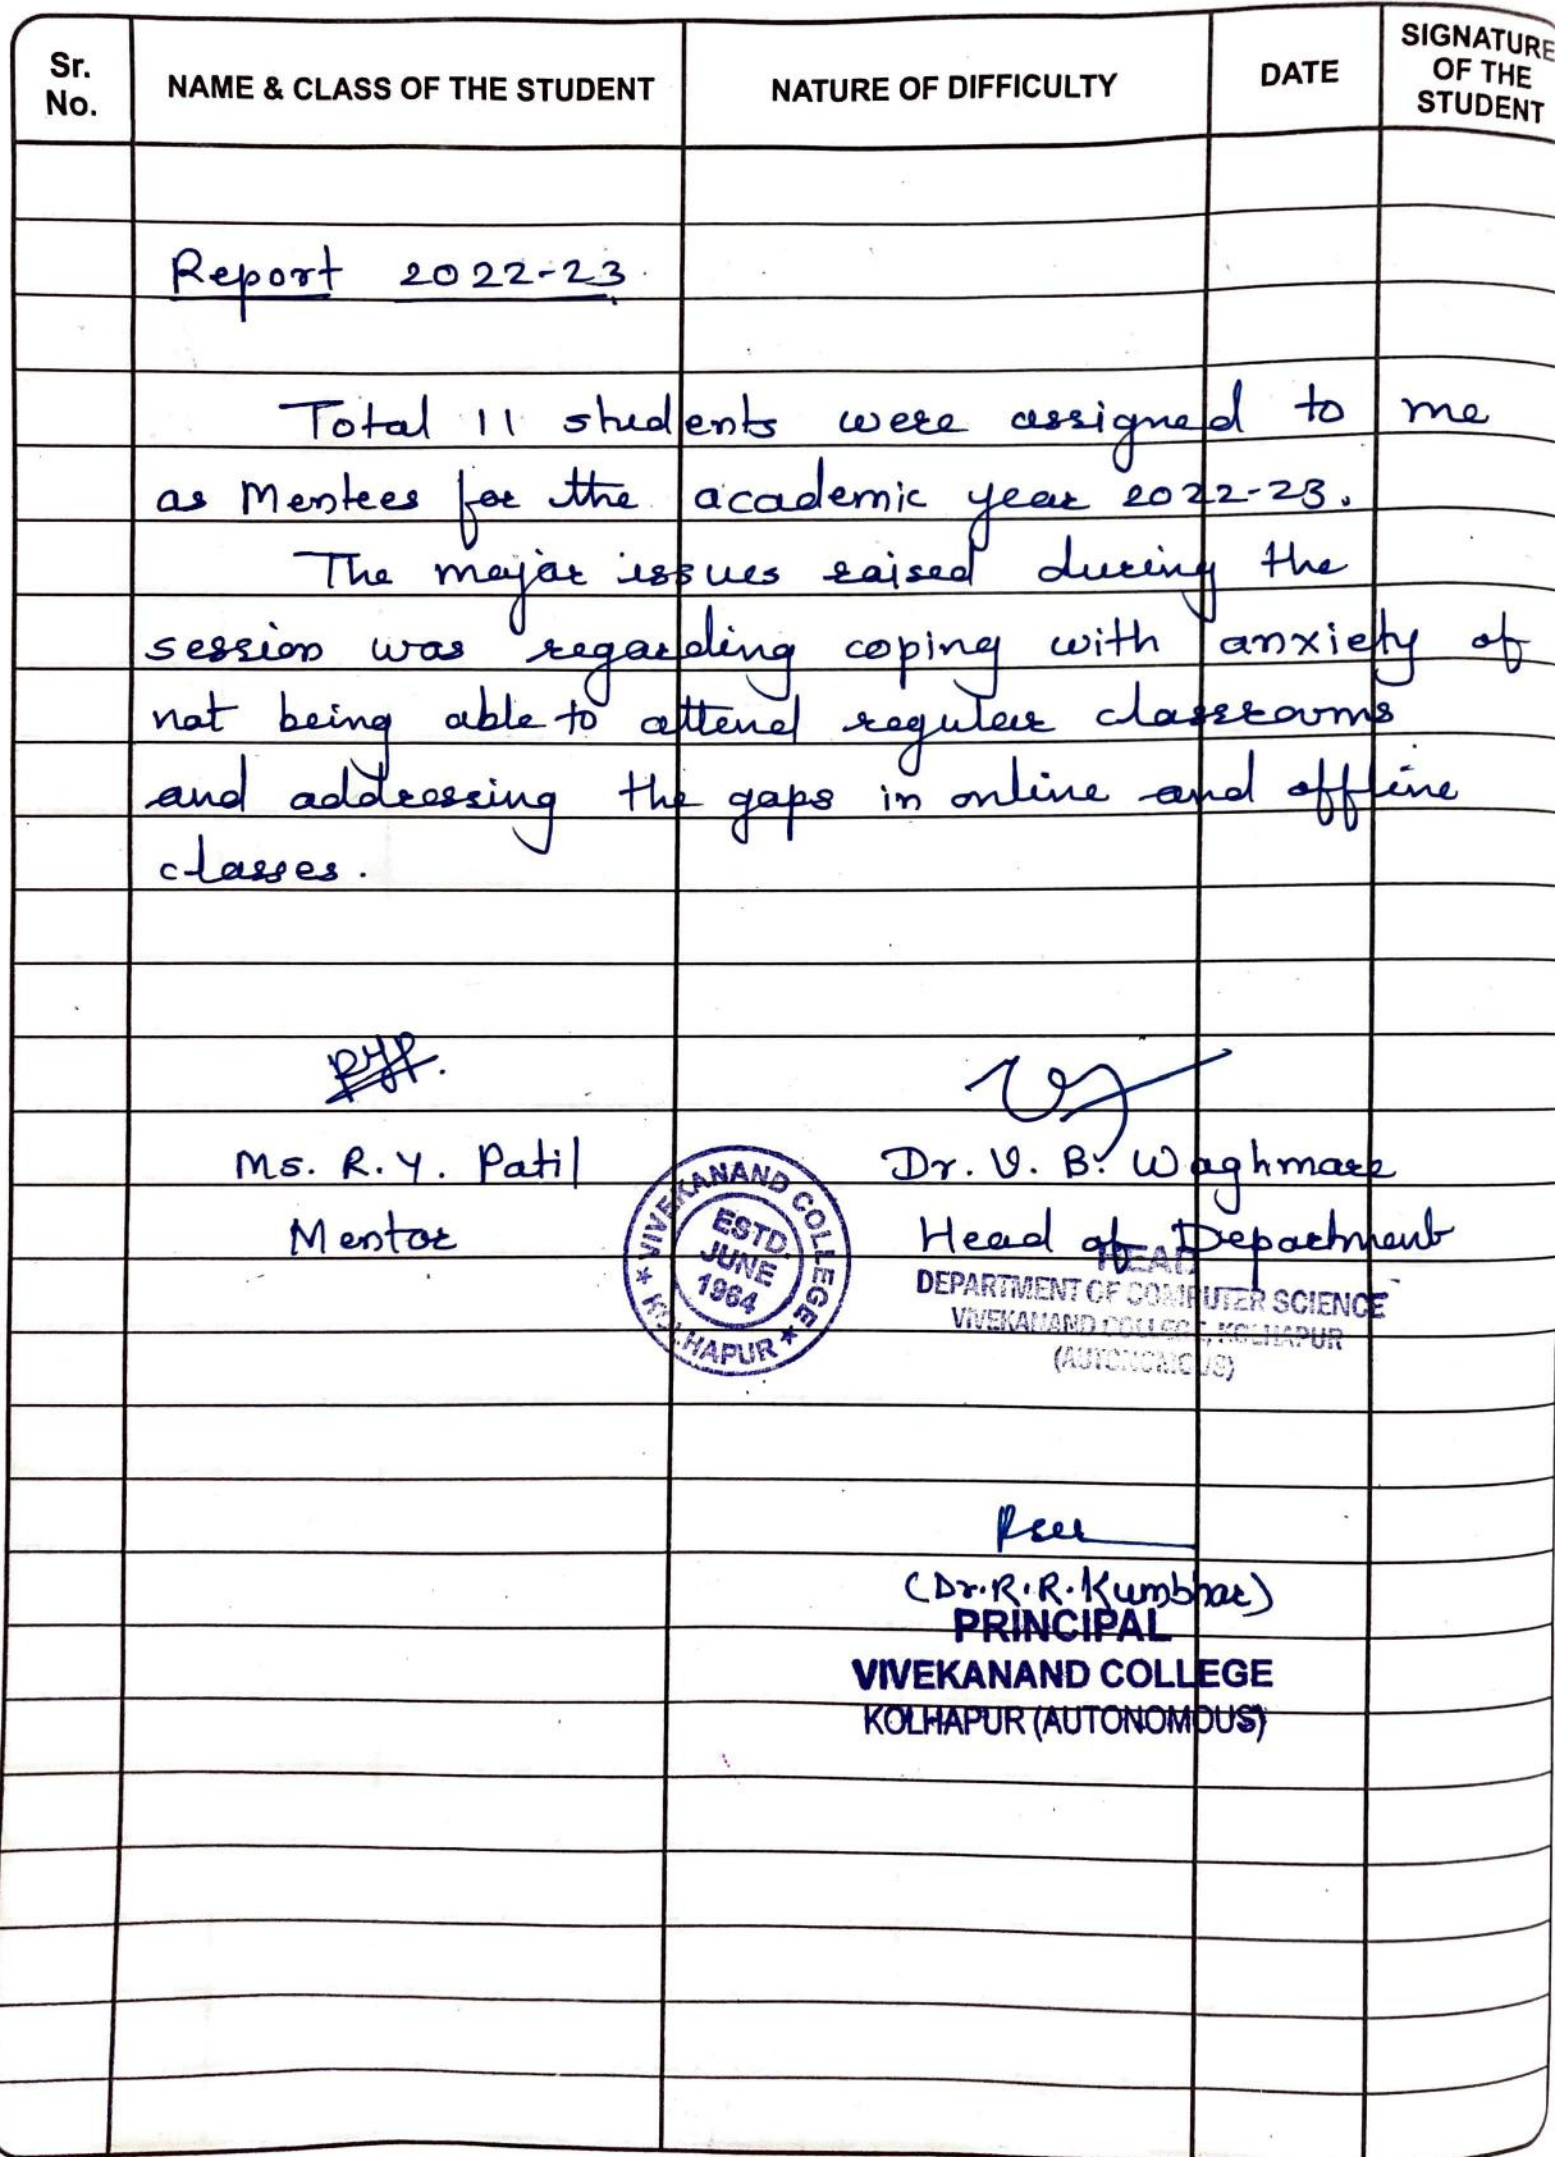 Sr. No.
NAME & CLASS OF THE STUDENT
NATURE OF DIFFICULTY
DATE
SIGNATURE OF THE STUDENT
Report 2022-23.
Total 11 students were assigned to me
as Mentees for the academic year 2022-23.
The major issues raised during the
session was regarding coping with anxiety of
not being able to attend regular classrooms
and addressing the gaps in online and offline
classes.
Ms. R. Y. Patil
Dr. V. B. Waghmare
Mentor
Head of Department
VIVEKANAND COLLEGE
KOLHAPUR
ESTD.
JUNE
1964
HEAD
DEPARTMENT OF COMPUTER SCIENCE
VIVEKANAND COLLEGE, KOLHAPUR
(AUTONOMOUS)
(Dr. R. R. Kumbhar)
PRINCIPAL
VIVEKANAND COLLEGE
KOLHAPUR (AUTONOMOUS)